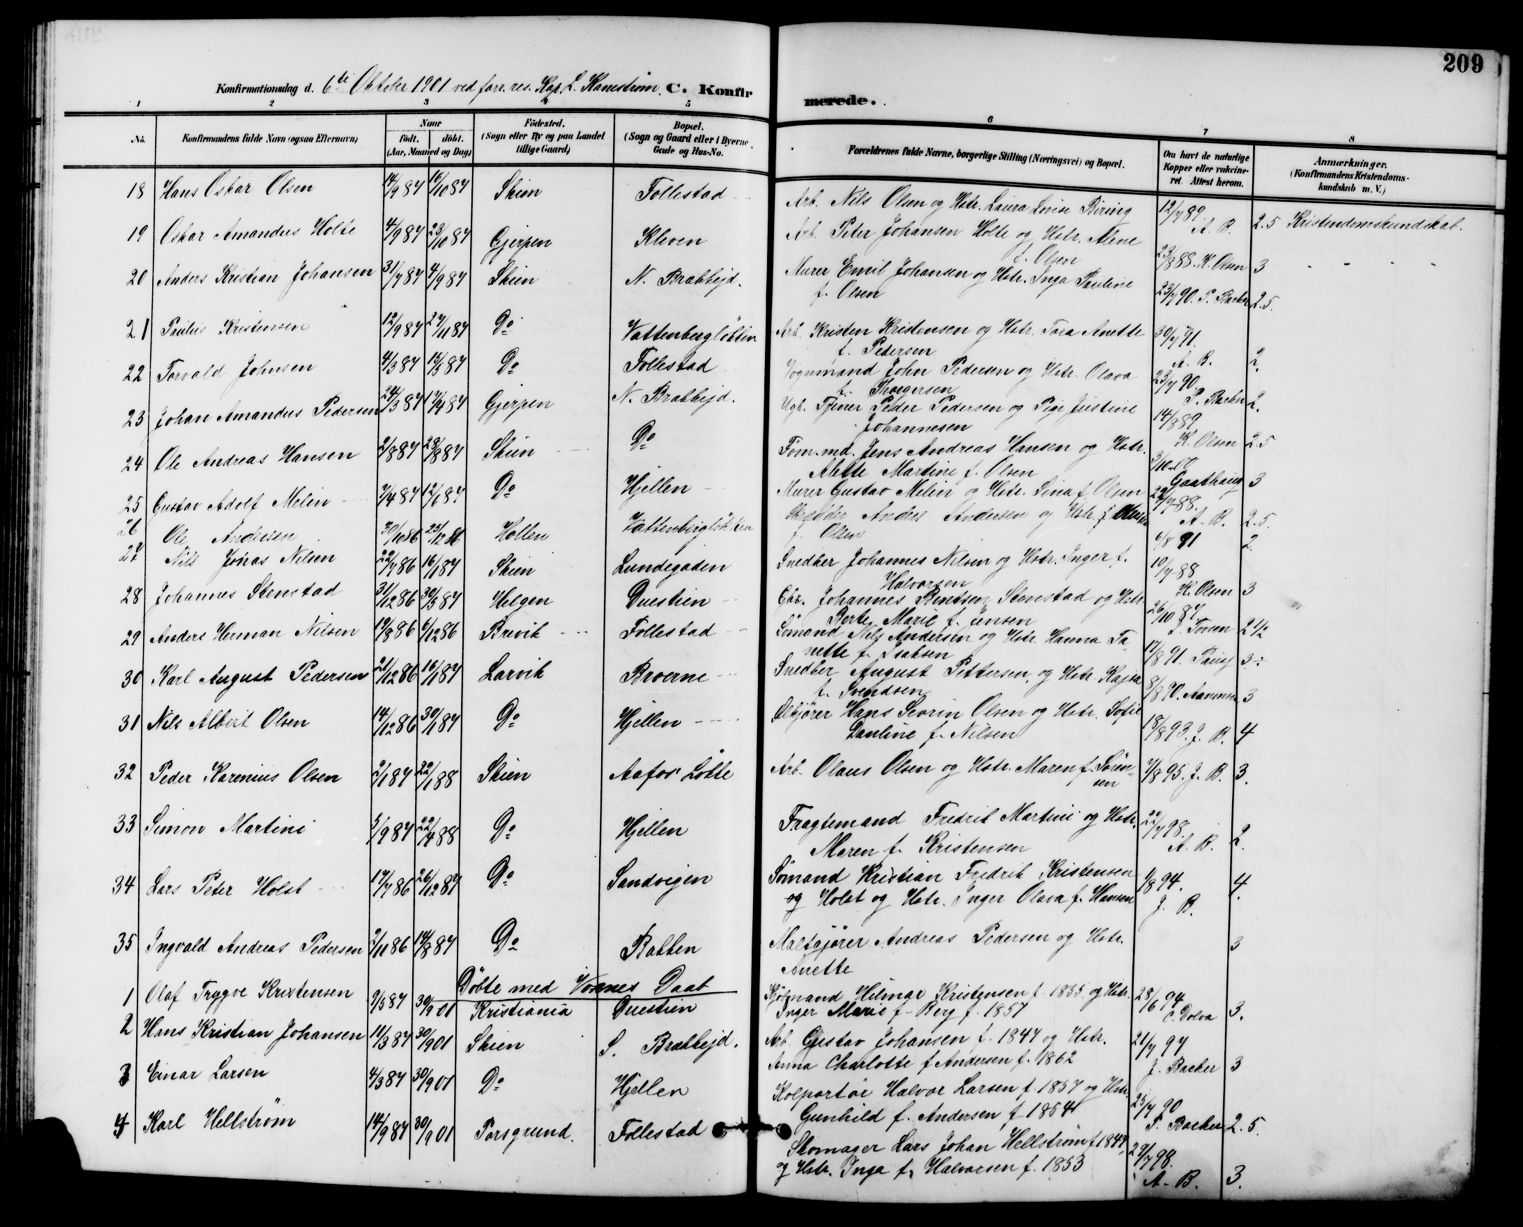 209
Konfirmationsdag d. 6te Oktober 1901 ved fører. res. Kap. L. C. Konfir
merede.
1 2 3 4 5 6 7 8
No. Konfirmandens fulde Navn (ogsaa Efternavn) Naar født. døbt. (Aar, Maaned og Dag) Fødested. (Sogn eller By og paa Landet tillige Gaard) Bopæl. (Sogn og Gaard eller i Byerne Gade og Hus-No. Forældrenes fulde Navne, borgerlige Stilling (Næringsvei) og Bopæl. Om havt de naturlige Kopper eller vaksineret. Attest herom. Anmærkninger. (Konfirmandens Kristendomskundskab m. V.)
18 Hans Oskar Olsen 14/9 87 16/10 87 Skien Follestad Arb. Nils Olsen og Hstr. Laura Lovise Büring 12/7 89. A. B. 2.5 Kristendomskundskab.
19 Oskar Amandus Holte 4/9 87 23/10 87 Gjerpen Kleven Arb. Peter Johansen Holte og Hstr. Alene
f. Olsen 23/8 88. K. Olsen 3
20 Anders Kristian Johansen 31/7 87 4/9 87 Skien N. Brakhejd. Murer Emil Johansen og Hstr. Inga Pauline
f. Olsen 23/7 90. P. Backer 2.5.
21 Paulus Kristensen 12/9 87 27/11 87 Do Vattenbergløkken Arb. Kristen Kristensen og Hstr. Tora Anette
f. Pedersen 30/7 91. A. B. 2.
22 Torvald Johnsen 4/3 87 Do Follestad Vognmand John Pedersen og Hstr. Olava
f. Thorgersen 23/7 90. P. Backer 2.
23 Johan Amandus Pedersen 24/3 87 17/4 87 Gjerpen N. Brakhejd. Ugh. Tjener Peder Pedersen og Pige Justine
Johannesen 14/8 89. K. Olsen 2.5
24 Ole Andreas Hansen 2/8 87 28/8 87 Skien Do Tom.md. Jens Andreas Hansen og Hstr.
Alette Martine f. Olsen 3/10 00 Gaathaug 3
25 Gustav Adolf Melin 7/4 87 12/6 87 Do Hjellen Murer Gustav Melin og Hstr. Sina f. Olsen 22/7 88. A. B. 2.5.
26 Ole Andersen 30/10 86 Hollen Vattenbergløkken Anders Andersen og Hstr. f.
f. Olsen 6/8 91 2.
27 Nils Jonas Nilsen 22/7 86 16/1 87 Skien Lundegaden Snedker Johannes Nilsen og Hstr. Inger f.
Halvorsen 10/7 88 K. Olsen 3
28 Johannes Stenstad 31/12 86 30/5 87 Helgen Duestien Gbr. Johannes Bentsen Stenstad og Hstr
Berte Marie f. Jensen 26/10 87 P. Torsen 2 1/2
29 Anders Herman Nilsen 19/8 86 6/12 86 Brevik Follestad Sømand Nils Andersen og Hstr. Hanna Ta-
nette f. Isaksen 17/8 91. 3
30 Karl August Pedersen 21/12 86 16/1 87 Larvik Broerne Snedker August Pettersen og Hstr. Kajsa
f. Svendsen 8/8 90. Aamnes 3
31 Nils Albert Olsen 14/12 86 30/1 87 Do Hjellen Ølkjører Hans Severin Olsen og Hstr. Sofie
Pauline f. Nilsen 18/8 93. J. B. 4
32 Peder Karenius Olsen 3/1 87 22/1 88 Skien Aafos Løkke Arb. Olaus Olsen og Hstr. Maren f. Søren-
sen 7/8 95. J. B. 3.
33 Simon Martini 5/9 87 22/4 88 Do Hjellen Fragtemand Fredrik Martini og Hstr.
Maren f. Kristensen 22/7 98. A. B. 2.
34 Lars Peter Holst 17/7 86 26/12 87 Do Sandvigen Sømand Kristian Fredrik Kristensen
og Holst og Hstr. Inger Olava f. Hansen 1/8 94. J. B. 4.
35 Ingvald Andreas Pedersen 3/11 86 14/8 87 Do Bakken Maltkjører Andreas Pedersen og Hstr.
Anette 3
Døbte med Voxnes Daab
1 Olaf Trygve Kristensen 9/5 87 30/9 01 Kristiania Duestien Kjøbmand Hilmar Kristensen f. 1855 og Hstr.
Inger Marie f. Berg f. 1857 28/6 94 C. Dolva 3.
2 Hans Kristian Johansen 11/3 87 30/9 01 Skien S. Brakhejd. Arb. Gustav Johansen f. 1847 og Hstr.
Anna Charlotte f Andersen f. 1862 21/7 97 J. Backer 3
3 Einar Larsen 4/3 87 30/9 01 Do Hjellen Kolportør Halvor Larsen f. 1857 og Hstr
Gunhild f. Andersen f 1854 23/7 90 P. Backer 2.5.
4 Karl Hellstrøm 14/9 87 30/9 01 Porsgrund. Follestad Skomager Lars Johan Hellstrøm f 1849
og Hstr. Inga f. Halvorsen f. 1853 29/7 98. A. B. 3.